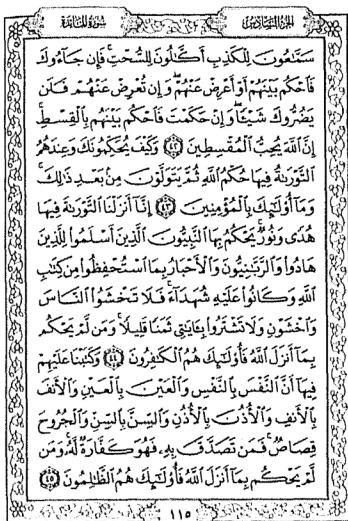 الجزء السادس سورة المائدة
سَمَّٰعُونَ لِلْكَذِبِ أَكَّٰلُونَ لِلسُّحْتِ ۚ فَإِن جَآءُوكَ
فَٱحْكُم بَيْنَهُمْ أَوْ أَعْرِضْ عَنْهُمْ ۖ وَإِن تُعْرِضْ عَنْهُمْ فَلَن
يَضُرُّوكَ شَيْـًٔا ۖ وَإِنْ حَكَمْتَ فَٱحْكُم بَيْنَهُم بِٱلْقِسْطِ ۚ
إِنَّ ٱللَّهَ يُحِبُّ ٱلْمُقْسِطِينَ ٤٢ وَكَيْفَ يُحَكِّمُونَكَ وَعِندَهُمُ
ٱلتَّوْرَىٰةُ فِيهَا حُكْمُ ٱللَّهِ ثُمَّ يَتَوَلَّوْنَ مِنۢ بَعْدِ ذَٰلِكَ ۚ
وَمَآ أُو۟لَٰٓئِكَ بِٱلْمُؤْمِنِينَ ٤٣ إِنَّآ أَنزَلْنَا ٱلتَّوْرَىٰةَ فِيهَا
هُدًى وَنُورٌ ۚ يَحْكُمُ بِهَا ٱلنَّبِيُّونَ ٱلَّذِينَ أَسْلَمُوا۟ لِلَّذِينَ
هَادُوا۟ وَٱلرَّبَّٰنِيُّونَ وَٱلْأَحْبَارُ بِمَا ٱسْتُحْفِظُوا۟ مِن كِتَٰبِ
ٱللَّهِ وَكَانُوا۟ عَلَيْهِ شُهَدَآءَ ۚ فَلَا تَخْشَوُا۟ ٱلنَّاسَ
وَٱخْشَوْنِ وَلَا تَشْتَرُوا۟ بِـَٔايَٰتِى ثَمَنًا قَلِيلًا ۚ وَمَن لَّمْ يَحْكُم
بِمَآ أَنزَلَ ٱللَّهُ فَأُو۟لَٰٓئِكَ هُمُ ٱلْكَٰفِرُونَ ٤٤ وَكَتَبْنَا عَلَيْهِمْ
فِيهَآ أَنَّ ٱلنَّفْسَ بِٱلنَّفْسِ وَٱلْعَيْنَ بِٱلْعَيْنِ وَٱلْأَنفَ
بِٱلْأَنفِ وَٱلْأُذُنَ بِٱلْأُذُنِ وَٱلسِّنَّ بِٱلسِّنِّ وَٱلْجُرُوحَ
قِصَاصٌ ۚ فَمَن تَصَدَّقَ بِهِۦ فَهُوَ كَفَّارَةٌ لَّهُۥ ۚ وَمَن
لَّمْ يَحْكُم بِمَآ أَنزَلَ ٱللَّهُ فَأُو۟لَٰٓئِكَ هُمُ ٱلظَّٰلِمُونَ ٤٥
١١٥